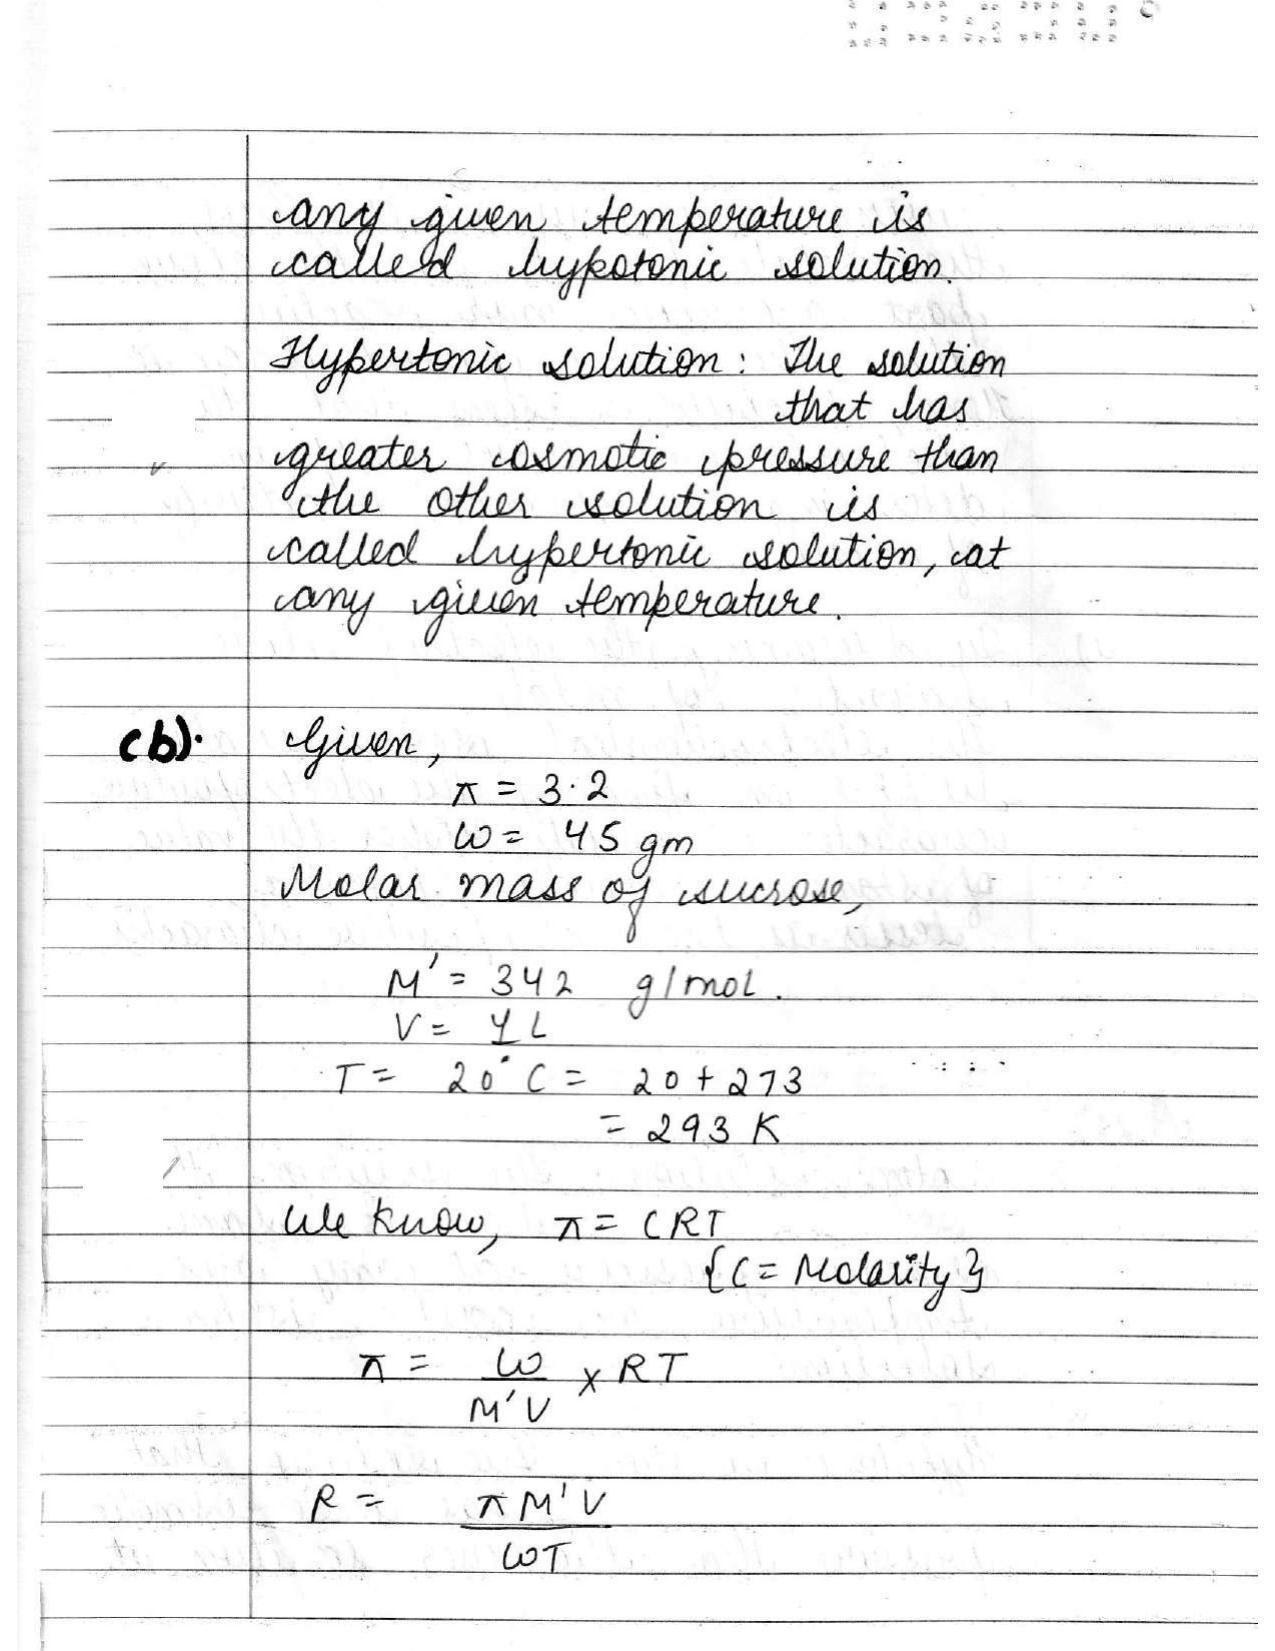 any given temperature is
called hypotonic solution.
Hypertonic solution: The solution
that has
greater osmotic pressure than
the other solution is
called hypertonic solution, at
any given temperature.
(b). Given,
π = 3.2
W = 45 gm
Molar mass of sucrose,
M' = 342 g/mol.
V = 1 L
T = 20°C = 20 + 273
= 293 K
We know, π = CRT
{C = Molarity}
π = W/M'V × RT
R = πM'V/WT